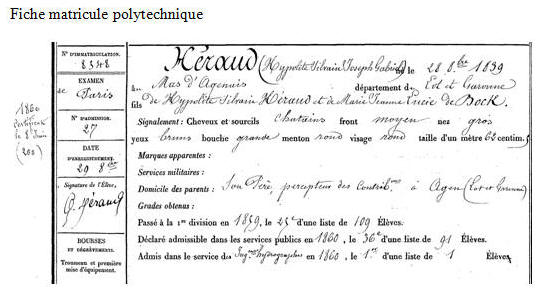 Fiche matricule polytechnique
N° D'IMMATRICULATION.
8348
EXAMEN
de Paris
N° D'ADMISSION.
27
DATE
D'ENREGISTREMENT.
29 8bre
Signature de l'Élève,
G. Héraud
BOURSES
ET DÉGRÈVEMENTS.
Trousseau et première
mise d'équipement.
1860
certificat
le 8 Juin
(200)
Héraud (Hypolite Silvain Joseph Gabriel) né le 28 8bre 1839
au Mas d'Agenais département de Lot et Garonne
fils de Hypolite Silvain Héraud et de Marie Jeanne Lucie de Bock.
Signalement: Cheveux et sourcils chatains front moyen nez gros
yeux bruns bouche grande menton rond visage rond taille d'un mètre 62 centim.
Marques apparentes :
Services militaires :
Domicile des parents : Son Père, percepteur des Contrib.ons à Agen (Lot et Garonne)
Grades obtenus :
Passé à la 1re division en 1859, le 25e d'une liste de 109 Élèves.
Déclaré admissible dans les services publics en 1860, le 36e d'une liste de 91 Élèves.
Admis dans le service des Ing.rs hydrographes en 1860, le 1er d'une liste de 1 Élèves.